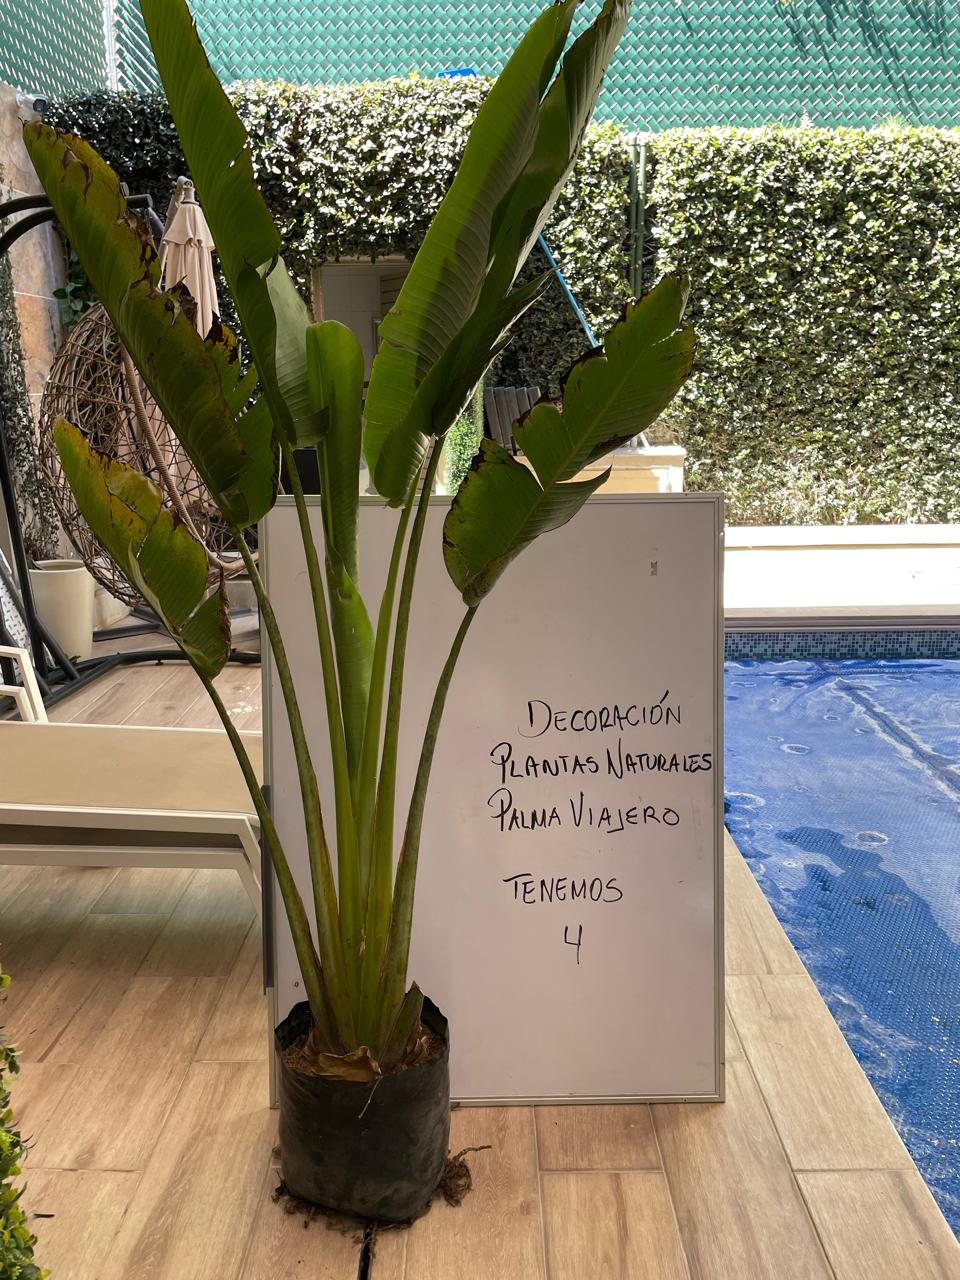 DECORACIÓN
PLANTAS NATURALES
PALMA VIAJERO
TENEMOS
4